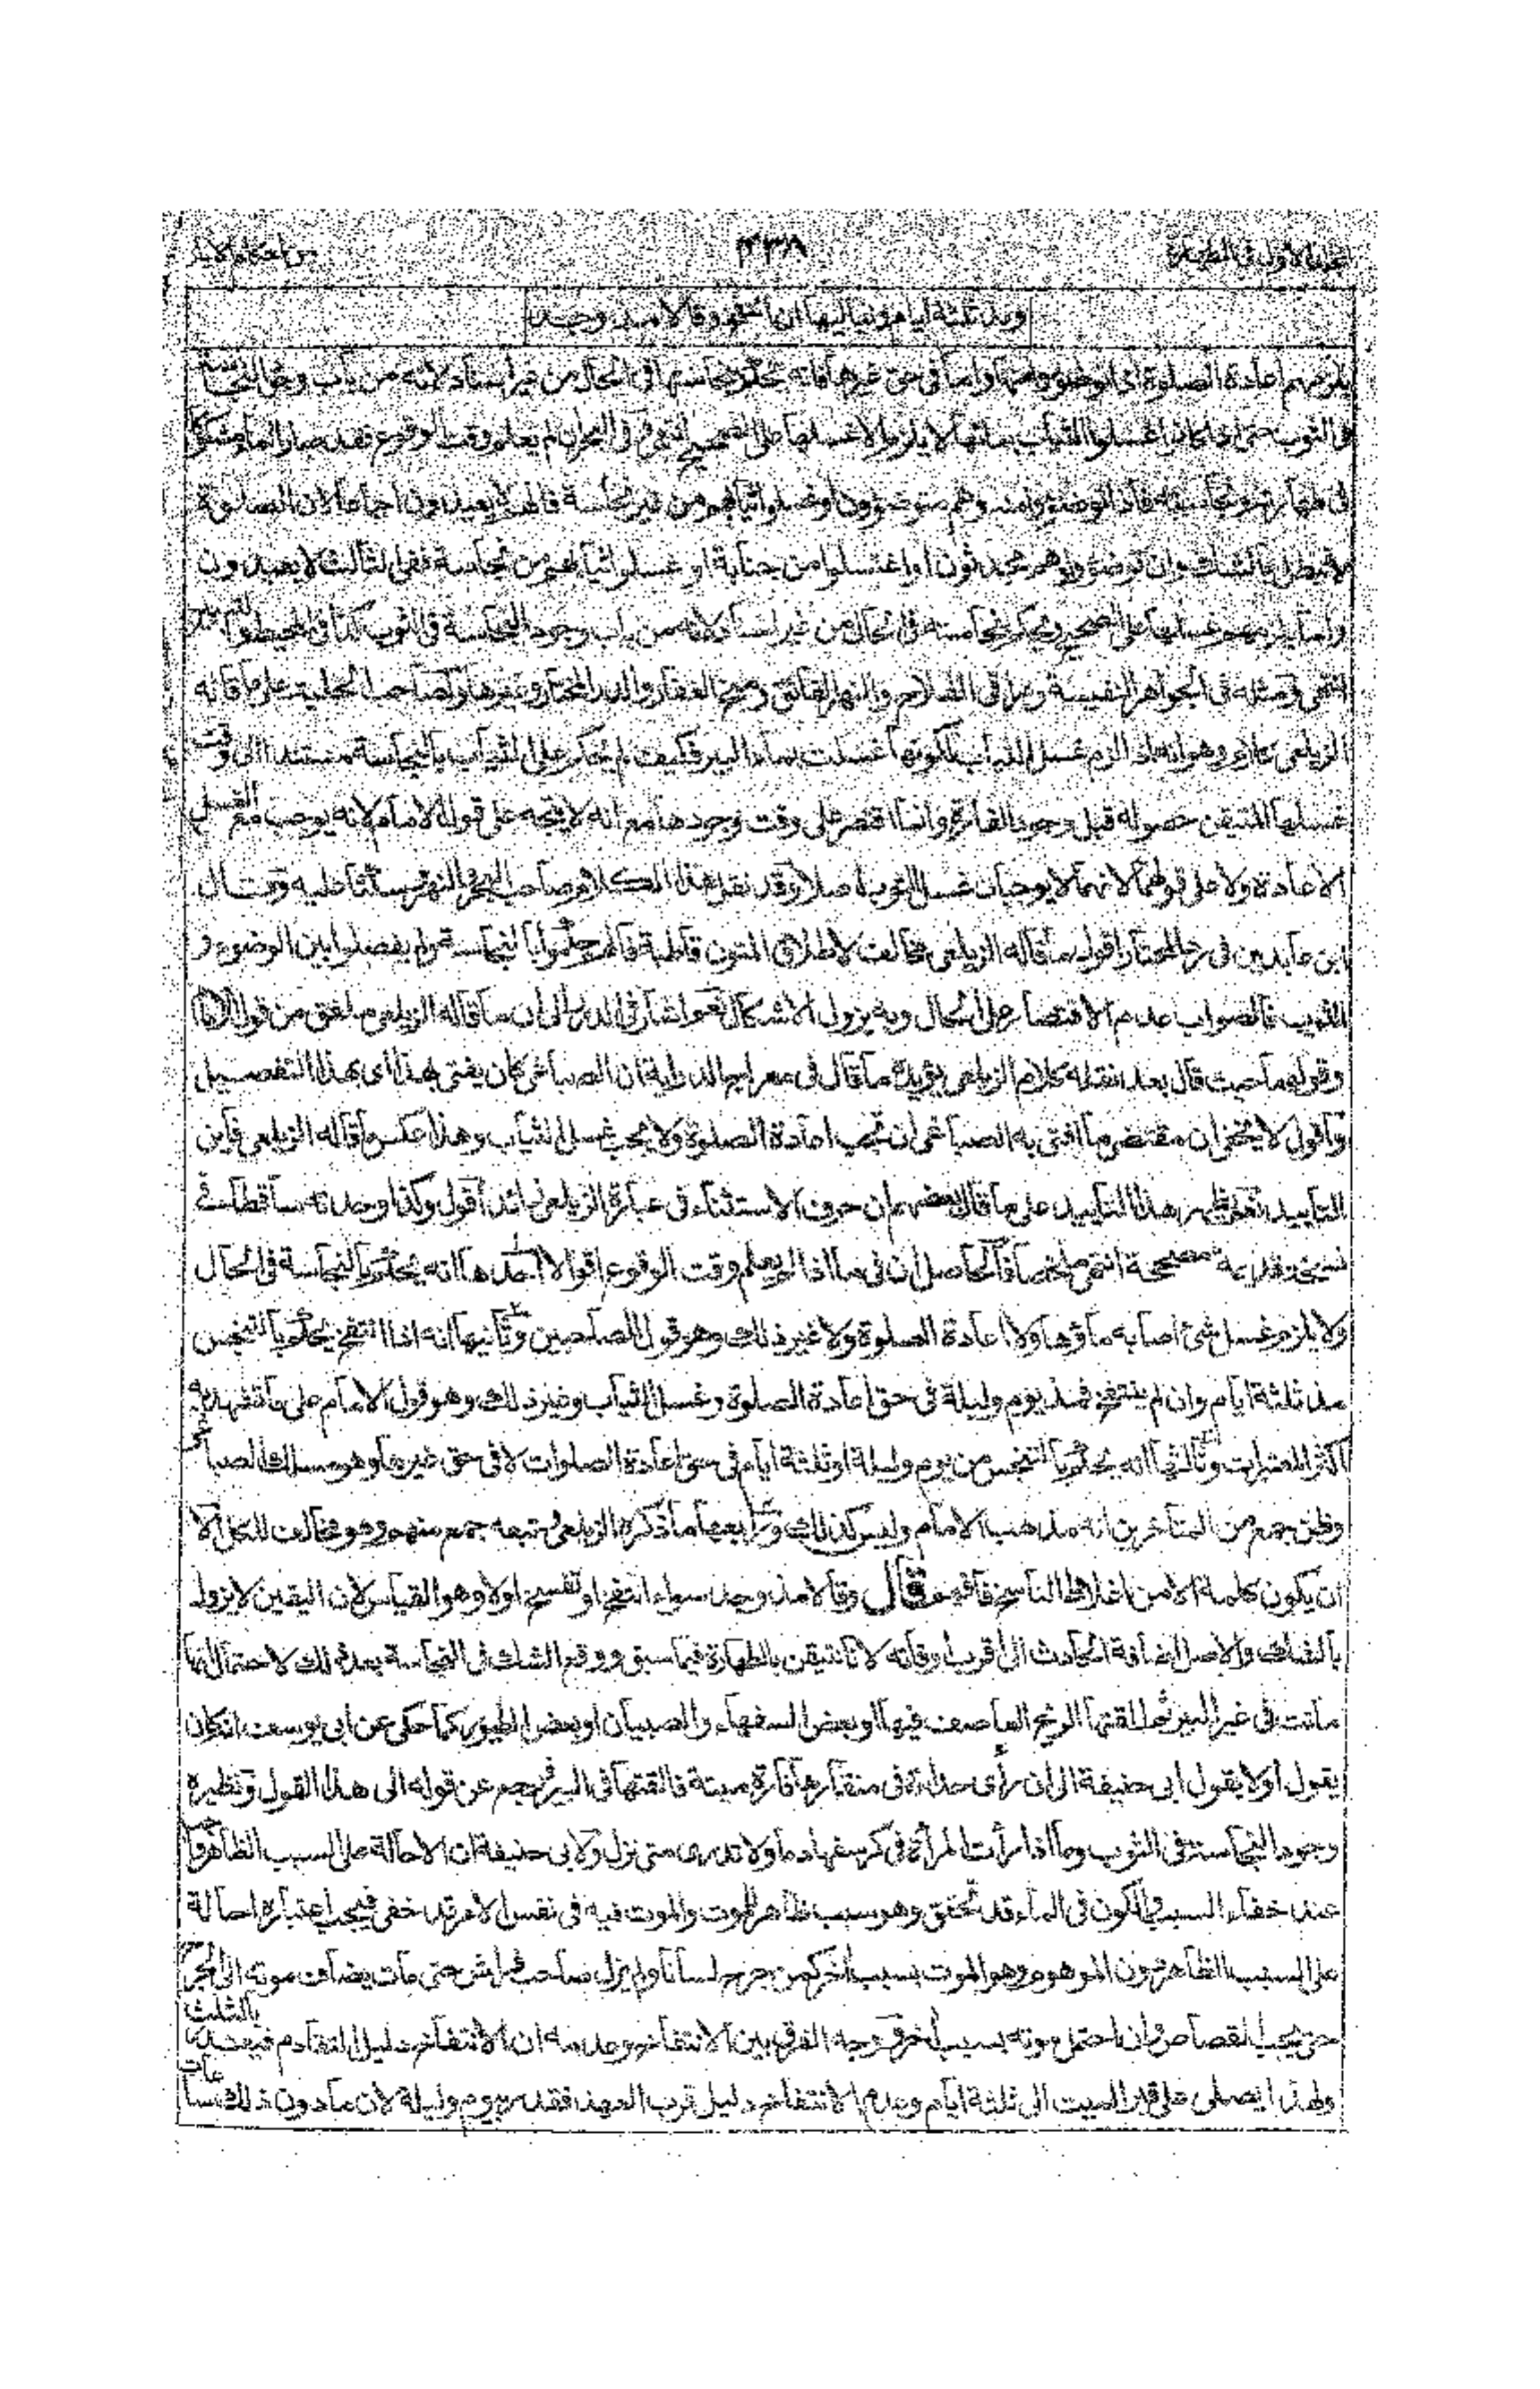 ٤٣٨
ومنذ ثلثة ايام ولياليها ان انتفخ وقالا منذ وجد
يلزمهم اعادة الصلوة اذا توضؤوا منها واما فى حق غيرها فانه يحكم بنجاستها فى الحال من غير اسناد لانه من باب وجود النجاسة
فى الثوب حتى اذا كانوا غسلوا الثياب بمائها لا يلزم الا غسلها على الصحيح انتهى وفى البحر ان لم يعلم وقت الوقوع فقد صار الماء مشكوكا
فى طهارته ونجاسته فاذا توضؤوا منه وهم متوضؤون او غسلوا ثيابهم من غير نجاسة فانهم لا يعيدون اجماعا لان الصلوة
لا تبطل بالشك وان توضؤوا وهم محدثون او اغتسلوا من جنابة او غسلوا ثيابهم من نجاسة ففى الثالث لا يعيدون
وانما يلزمهم غسلها على الصحيح ويحكم بنجاسته فى الحال من غير اسناد لانه من باب وجود النجاسة فى الثوب كذا فى المحيط
انتهى ومثله فى الجواهر النفيسة ومراقى الفلاح والنهر الفائق ومنح الغفار والدر المختار وغيرها ولصاحب الحلية على ما قاله
الزيلعى كلام وهو انه اذا لزم غسل الثياب لكونها غسلت بماء البير فكيف لم يحكم على الثياب بالنجاسة مستندا الى وقت
غسلها المتيقن حصوله قبل وجود الفارة وانما اقتصر على وقت وجودها مع انه لا يتجه على قوله الامام لانه يوجب مع الغسل
الاعادة ولا على قولهما لانهما لا يوجبان غسل الثوب اصلا وقد نقل هذا الكلام صاحب البحر والنهر ساكتا عليه وقال
ابن عابدين فى رد المحتار اقول ما قاله الزيلعى مخالف لاطلاق المتون قاطبة فانهم حكموا بالنجاسة ولم يفصلوا بين الوضوء و
الثوب فالصواب عدم الاقتصار على الحال وبه يزول الاشكال نعم اشار فى الدرر الى ان ما قاله الزيلعى ملفق من قول الامام
وقولهما حيث قال بعد نقله كلام الزيلعى يؤيده ما قال فى معراج الدراية ان الصباغى كان يفتى بهذا اى بهذا التفصيل
واقول لا يخفى ان مقتضى ما افتى به الصباغى ان تجب اعادة الصلوة ولا يجب غسل الثياب وهذا عكس ما قاله الزيلعى فاين
التاييد نعم يظهر هذا التاييد على ما قال بعضهم ان حرف الاستثناء فى عبارة الزيلعى زائد اقول وكذا وجدته ساقطا فى
نسخة قديمة مصححة انتهى ملخصا فالحاصل ان فى ما اذا لم يعلم وقت الوقوع اقوالا احدها انه يحكم بالنجاسة فى الحال
ولا يلزم غسل شئ اصابه ماؤها ولا اعادة الصلوة ولا غير ذلك وهو قول الصاحبين وثانيها انه اذا انتفخ يحكم بالتنجس
مذ ثلثة ايام وان لم ينتفخ فمذ يوم وليلة فى حق اعادة الصلوة وغسل الثياب وغير ذلك وهو قول الامام على ما تشهد به
اكثر المعتبرات وثالثها انه يحكم بالتنجس من يوم وليلة او ثلثة ايام فى حق اعادة الصلوات لا فى حق غيرها وهو مسلك الصباغى
وظن جمع من المتاخرين انه مذهب الامام وليس كذلك ورابعها ما ذكره الزيلعى وتبعه جمع منهم وهو مخالف للكل الا
ان يكون كلمة الا من اغلاط الناسخ فافهم قال وقالا منذ وجد سواء انتفخ او تفسخ او لا وهو القياس لان اليقين لا يزول
بالشك والاصل اضافة الحادث الى اقرب اوقاته لانا نتيقن بالطهارة فيما سبق ووقع الشك فى النجاسة بعد ذلك لاحتمال انها
ماتت فى غير البير ثم القتها الريح العاصف فيها او بعض السفهاء والصبيان او بعض الطيور كما حكى عن ابى يوسف انه كان
يقول اولا بقول ابى حنيفة الى ان رأى حداة فى منقارها فارة ميتة فالقتها فى البير فرجع عن قوله الى هذا القول ونظيره
وجود النجاسة فى الثوب وما اذا رأت المرأة فى كرسفها دما ولا تدرى متى نزل ولابى حنيفة ان الاحالة على السبب الظاهر واجب
عند خفاء السبب والكون فى الماء قد تحقق وهو سبب ظاهر للموت والموت فيه فى نفس الامر قد خفى فيجب اعتباره احالة
على السبب الظاهر دون الموهوم وهو الموت بسبب اخر كمن جرح انسانا ولم يزل صاحب فراش حتى مات يضاف موته الى الجرح
حتى يجب القصاص وان احتمل موته بسبب اخر ووجه الفرق بين الانتفاخ وعدمه ان الانتفاخ دليل التقادم فيقدر بالثلث
ولهذا يصلى على قبر الميت الى ثلثة ايام وعدم الانتفاخ دليل قرب العهد فقدر بيوم وليلة لان ما دون ذلك ساعات